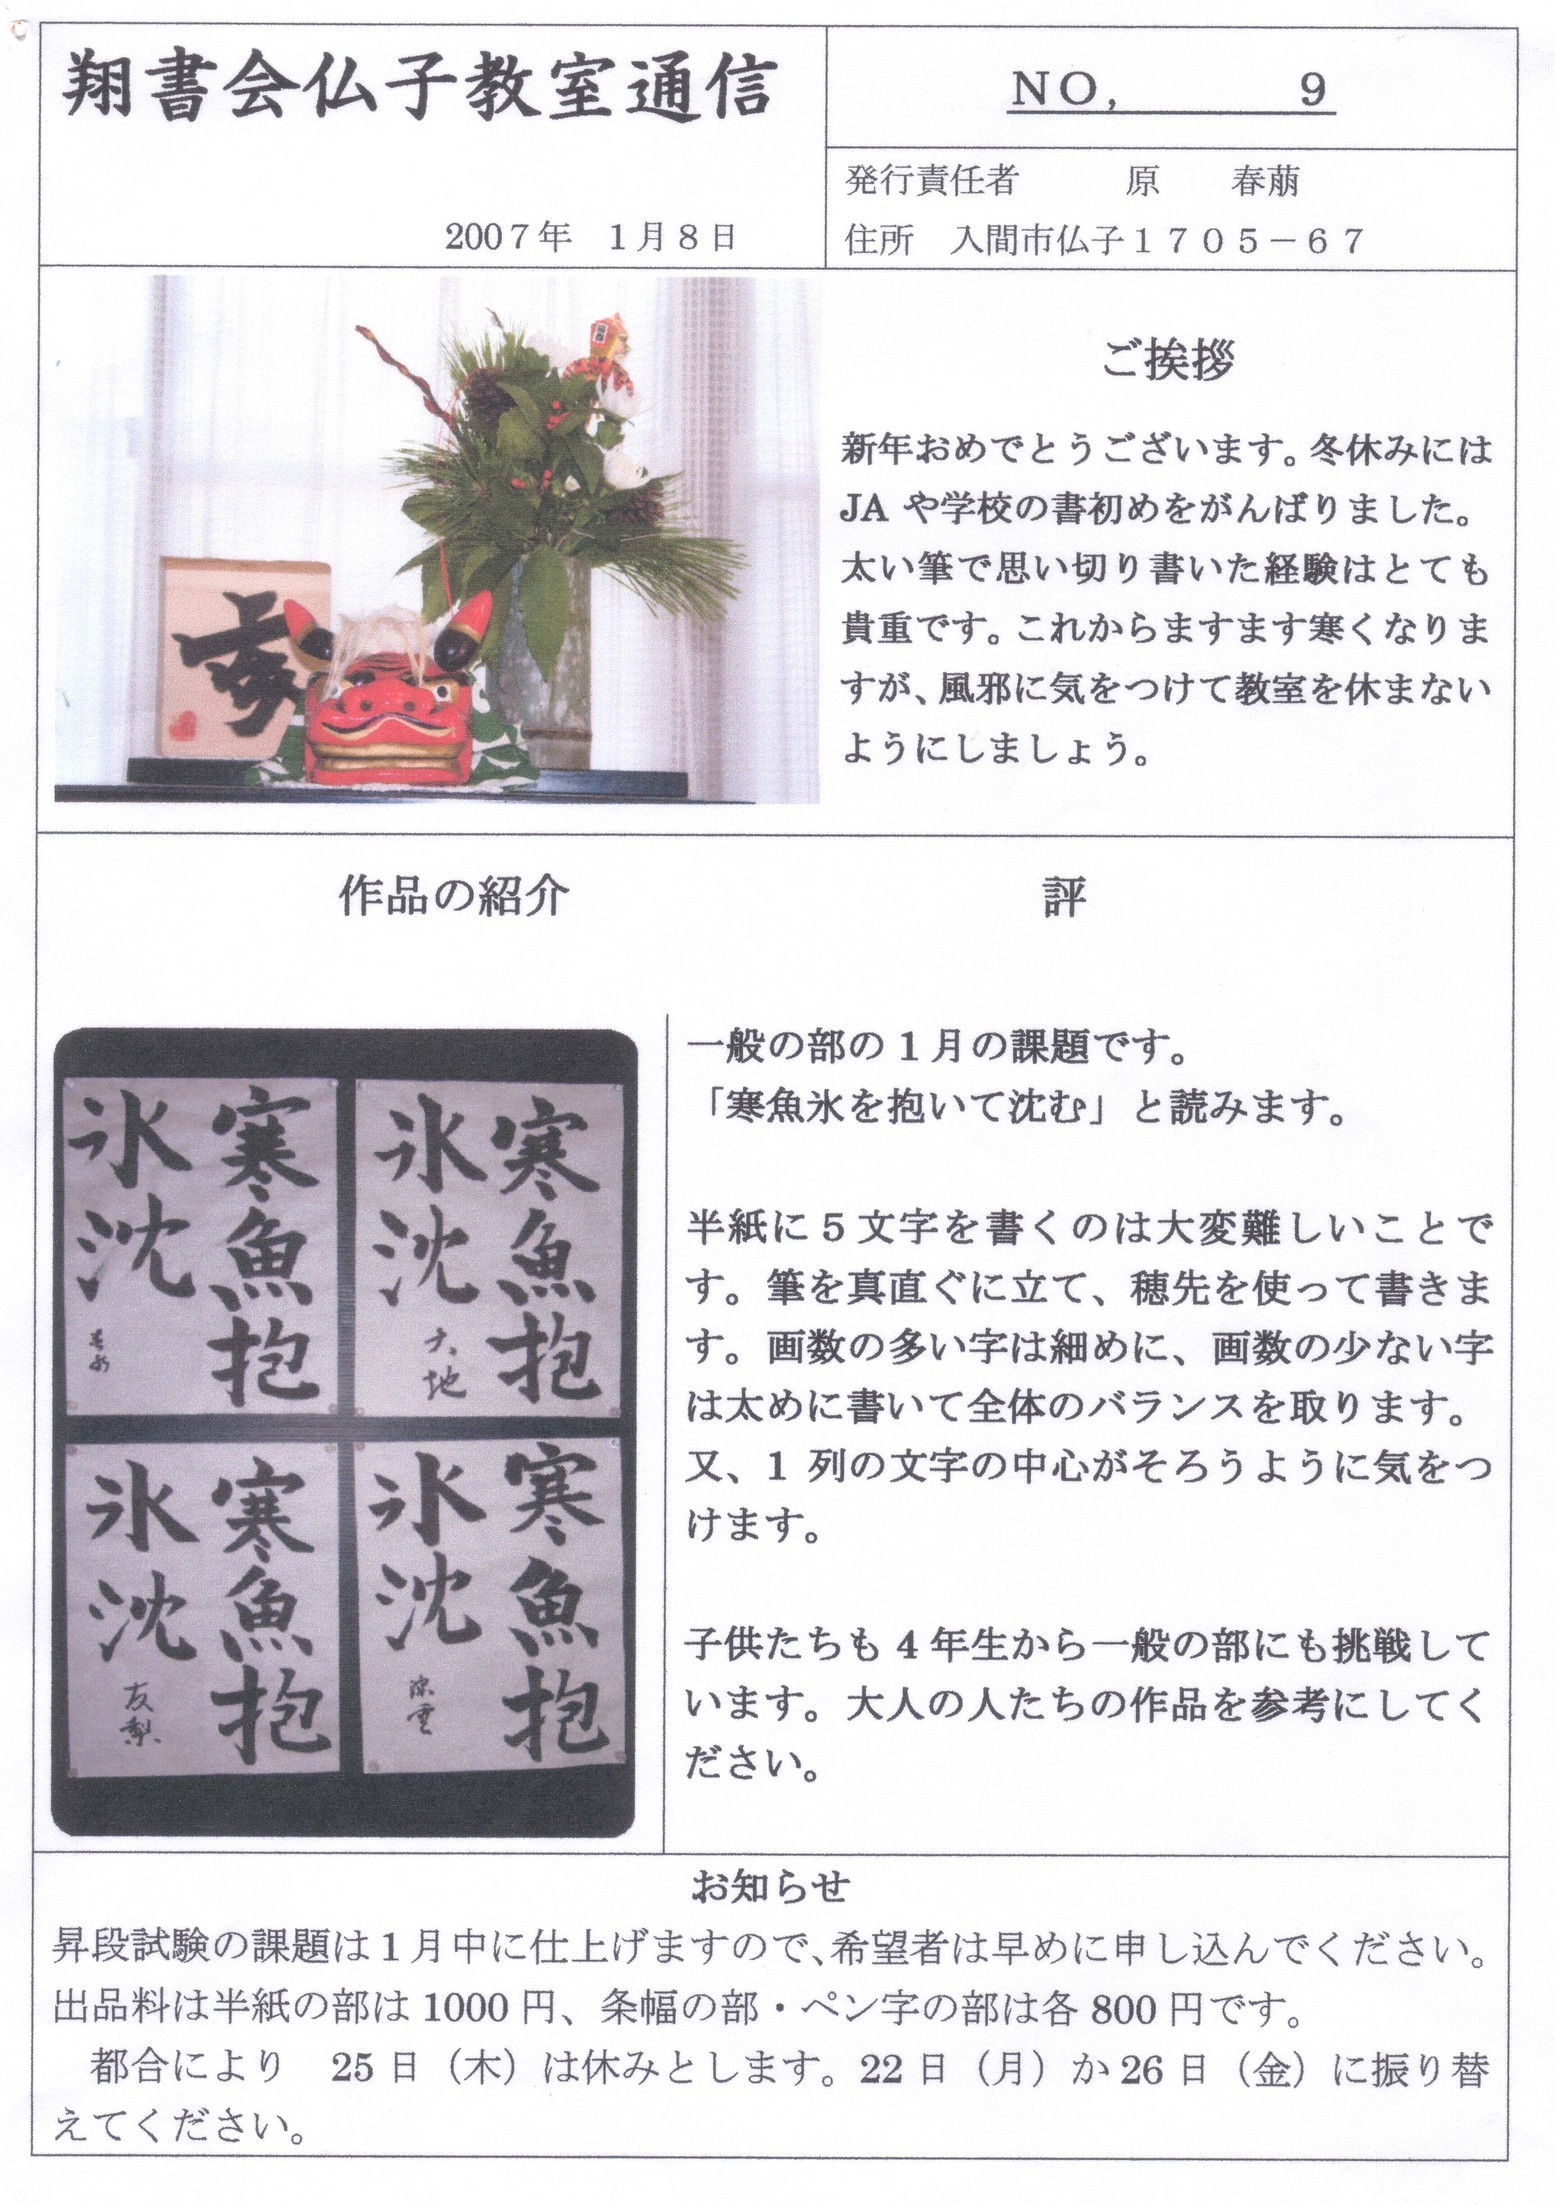 翔書会仏子教室通信
2007年　1月8日
NO,　　　　9
発行責任者　　　原　　春萠
住所　入間市仏子1705－67
ご挨拶
新年おめでとうございます。冬休みには
JA や学校の書初めをがんばりました。
太い筆で思い切り書いた経験はとても
貴重です。これからますます寒くなりま
すが、風邪に気をつけて教室を休まない
ようにしましょう。
作品の紹介
寒魚抱
氷沈
寒魚抱
氷沈
大地
寒魚抱
氷沈
友梨
寒魚抱
氷沈
評
一般の部の 1 月の課題です。
「寒魚氷を抱いて沈む」と読みます。
半紙に 5 文字を書くのは大変難しいことで
す。筆を真直ぐに立て、穂先を使って書きま
す。画数の多い字は細めに、画数の少ない字
は太めに書いて全体のバランスを取ります。
又、1 列の文字の中心がそろうように気をつ
けます。
子供たちも 4 年生から一般の部にも挑戦して
います。大人の人たちの作品を参考にしてく
ださい。
お知らせ
昇段試験の課題は 1 月中に仕上げますので、希望者は早めに申し込んでください。
出品料は半紙の部は 1000 円、条幅の部・ペン字の部は各 800 円です。
都合により　25 日（木）は休みとします。22 日（月）か 26 日（金）に振り替
えてください。